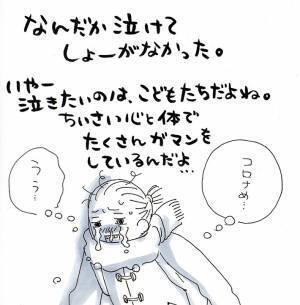 なんだか泣けて
しょーがなかった。
いやー
泣きたいのは、こどもたちだよね。
ちいさい心と体で
たくさんガマンを
しているんだよ…
コロナめ…
うう…